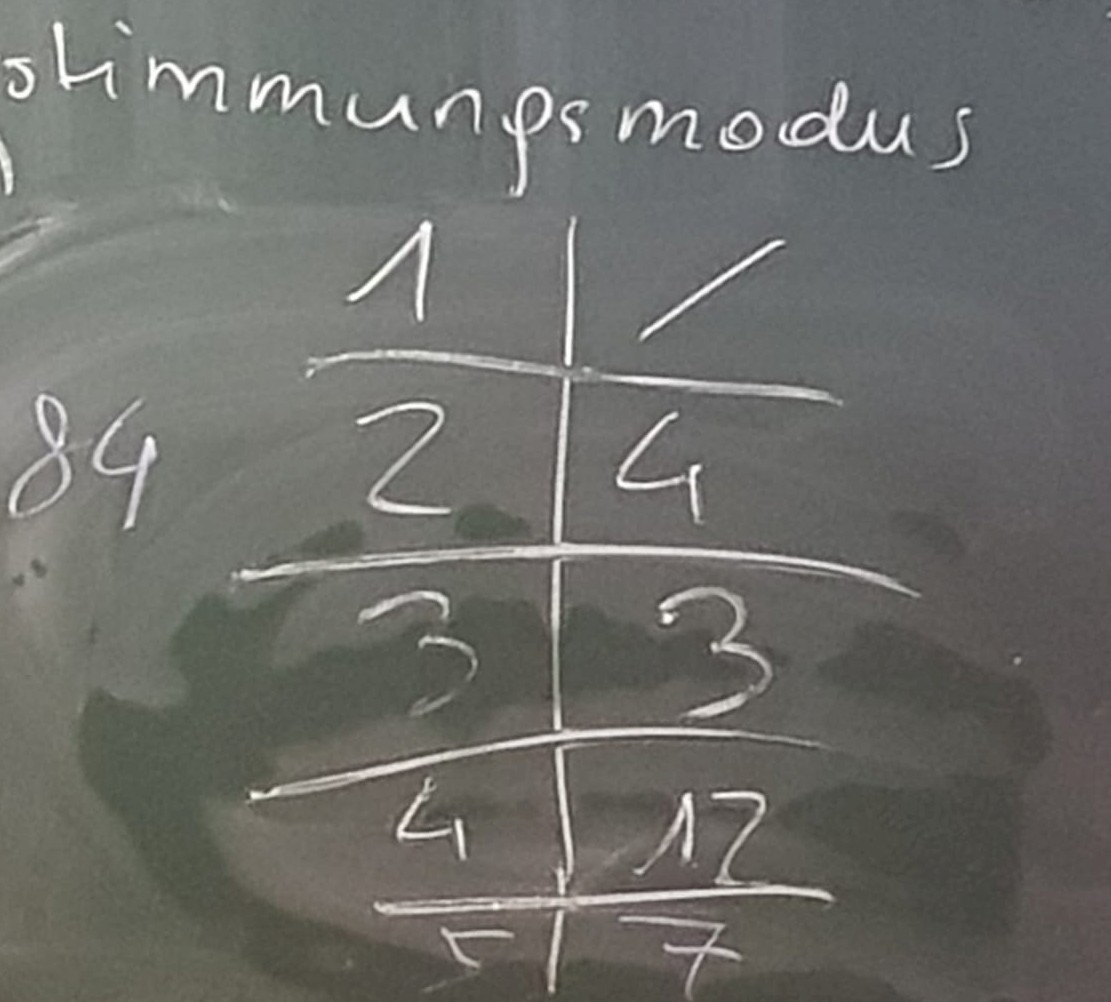 stimmungsmodus
1 | /
84 2 | 4
3 | 3
4 | 12
5 | 7